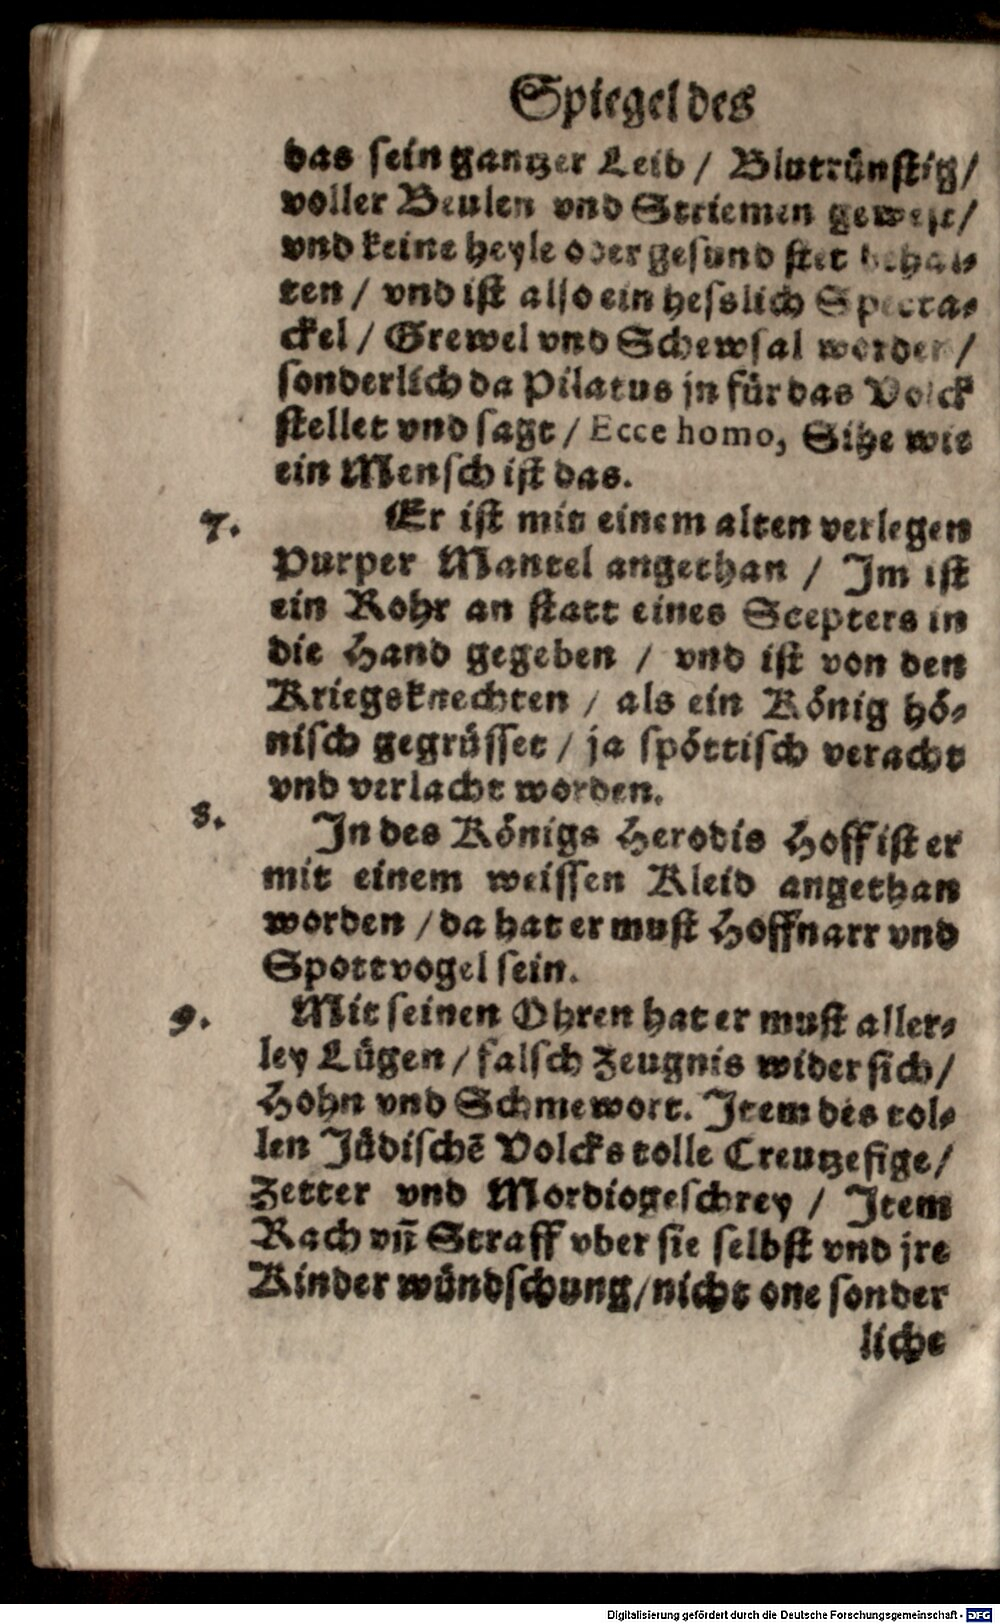 Spiegel des
das sein gantzer Leib / Blutrünstig/
voller Beulen vnd Striemen gewest/
vnd keine heyle oder gesund stet behal⸗
ten / vnd ist also ein hesslich Specta⸗
ckel / Grewel vnd Schewsal worden /
sonderlich da Pilatus jn für das Volck
stellet vnd sagt / Ecce homo, Sihe wie
ein Mensch ist das.
7. Er ist mit einem alten verlegen
Purper Mantel angethan / Im ist
ein Rohr an statt eines Scepters in
die Hand gegeben / vnd ist von den
Kriegsknechten / als ein König hö⸗
nisch gegrüsset / ja spöttisch veracht
vnd verlacht worden.
8. In des Königs Herodis Hoff ist er
mit einem weissen Kleid angethan
worden / da hat er must Hoffnarr vnd
Spottvogel sein.
9. Mit seinen Ohren hat er must aller⸗
ley Lügen / falsch Zeugnis wider sich /
Hohn vnd Schmewort. Item des tol⸗
len Jüdischē Volcks tolle Creutzefige/
Zetter vnd Mordiogeschrey / Item
Rach vn̄ Straff vber sie selbst vnd jre
Kinder wündschung/nicht one sonder
liche
Digitalisierung gefördert durch die Deutsche Forschungsgemeinschaft - DFG